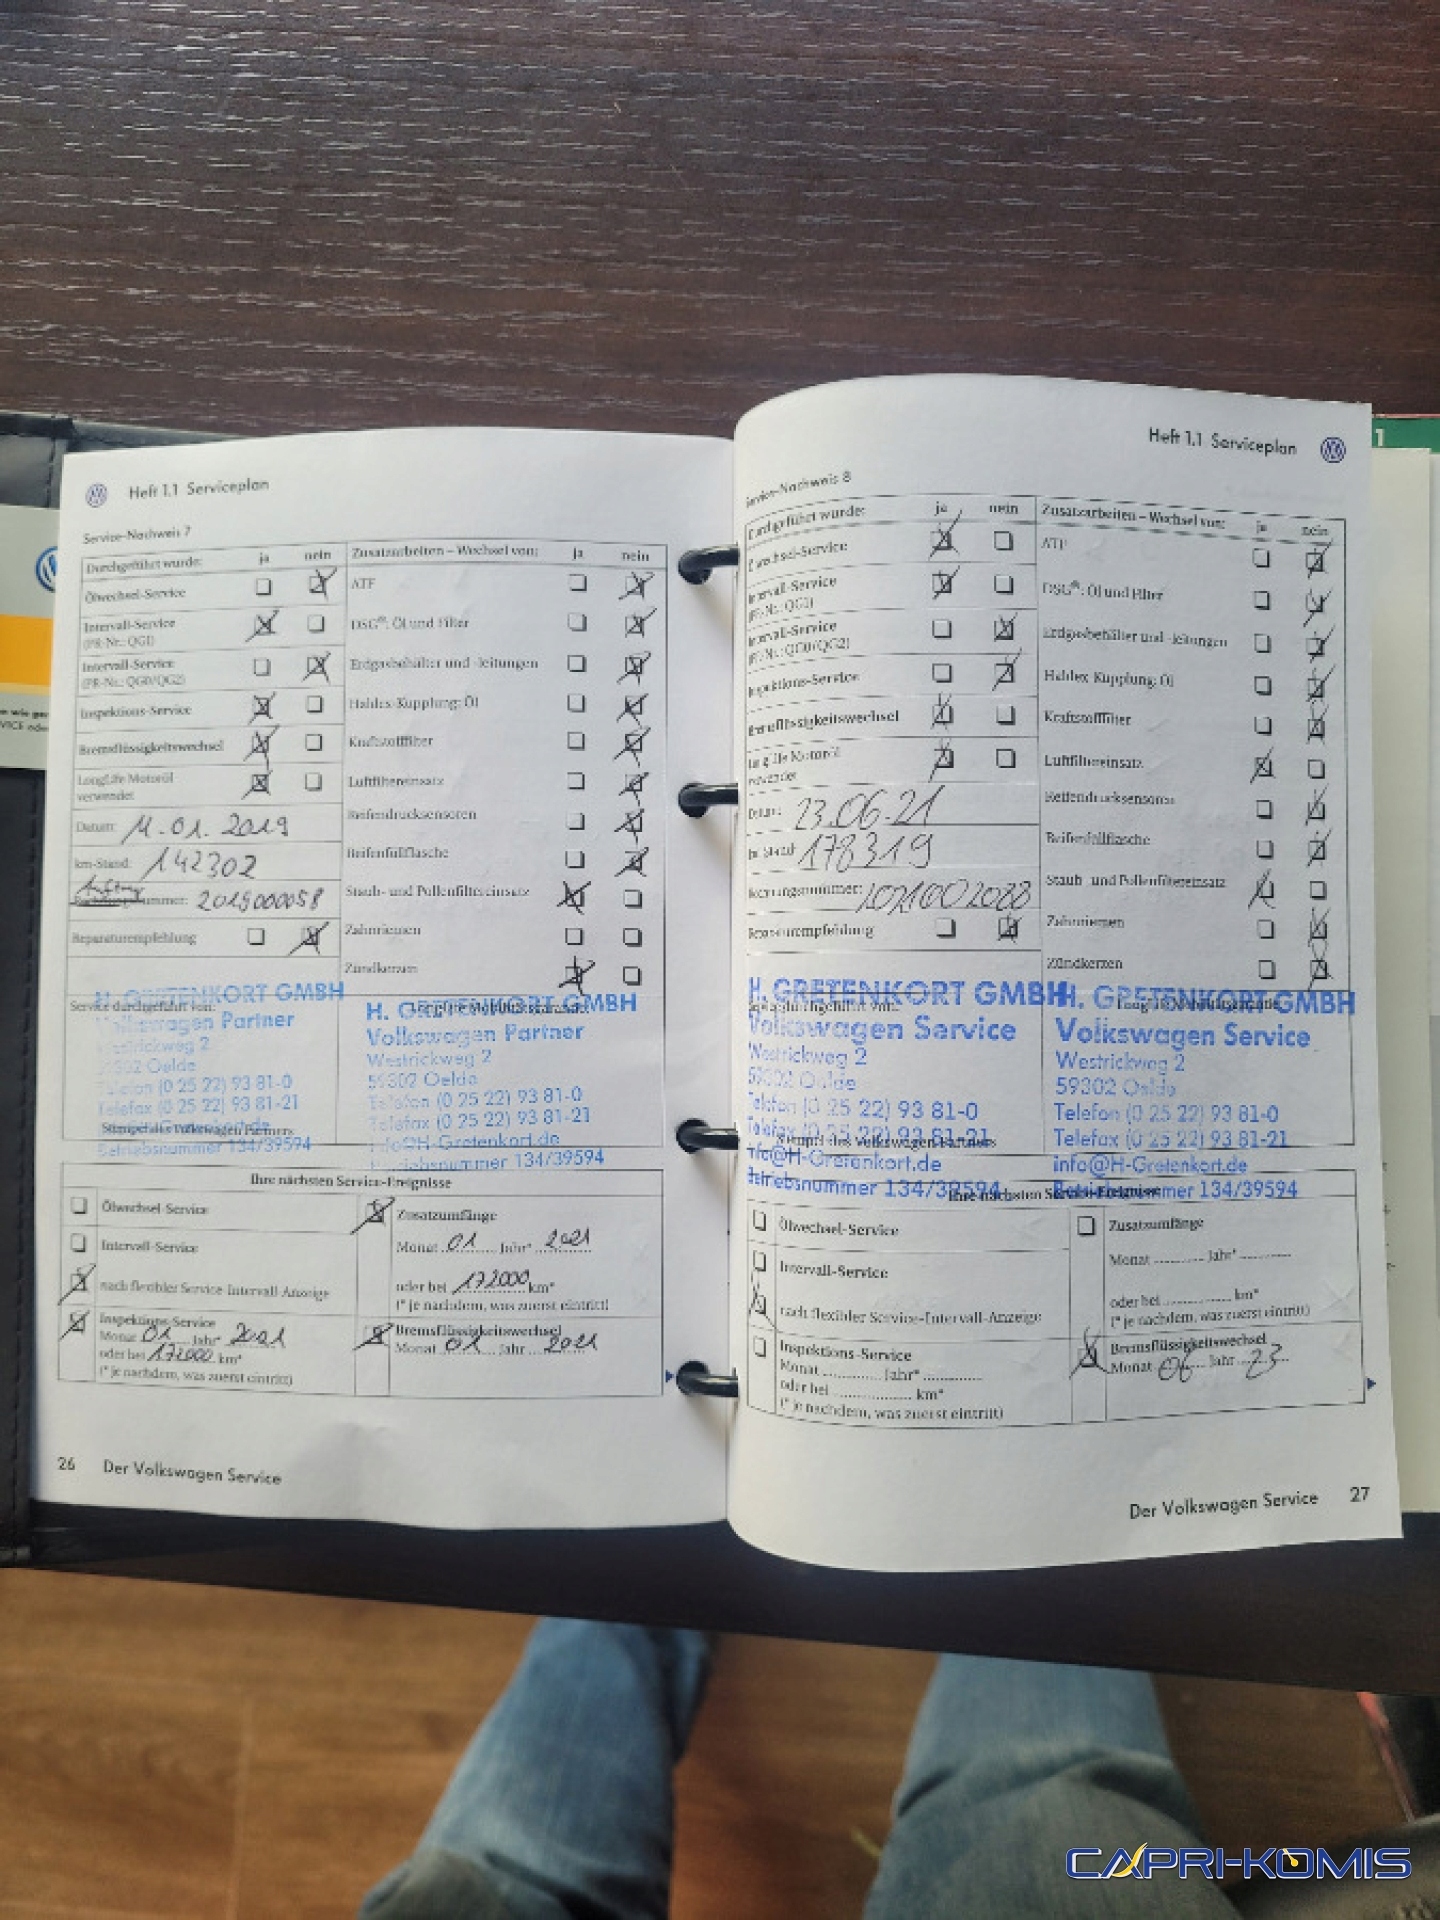 Heft 1.1 Serviceplan
Service-Nachweis 7
Durchgeführt wurde: ja nein
Ölwechsel-Service
Intervall-Service
(PR-Nr.: QG1)
Intervall-Service
(PR-Nr.: QG0/QG2)
Inspektions-Service
Bremsflüssigkeitswechsel
LongLife Motoröl
verwendet
Datum: 11.01.2019
km-Stand: 142302
nummer: 2019000058
Reparaturempfehlung
Zusatzarbeiten – Wechsel von: ja nein
ATF
DSG®: Öl und Filter
Erdgasbehälter und -leitungen
Haldex-Kupplung: Öl
Kraftstofffilter
Luftfiltereinsatz
Reifendrucksensoren
Reifenfüllflasche
Staub- und Pollenfiltereinsatz
Zahnriemen
Zündkerzen
Service durchgeführt von:
H. GRETENKORT GMBH
Volkswagen Partner
Westrickweg 2
59302 Oelde
Telefon (0 25 22) 93 81-0
Telefax (0 25 22) 93 81-21
Stempel des Volkswagen Partners
Betriebsnummer 134/39594
H. GRETENKORT GMBH
Volkswagen Partner
Westrickweg 2
59302 Oelde
Telefon (0 25 22) 93 81-0
Telefax (0 25 22) 93 81-21
info@H-Gretenkort.de
Betriebsnummer 134/39594
Ihre nächsten Service-Ereignisse
Ölwechsel-Service
Intervall-Service
nach flexibler Service-Intervall-Anzeige
Inspektions-Service
Monat 01 Jahr* 2021
oder bei 172000 km*
(* je nachdem, was zuerst eintritt)
Zusatzumfänge
Monat 01 Jahr* 2021
oder bei 172000 km*
(* je nachdem, was zuerst eintritt)
Bremsflüssigkeitswechsel
Monat 01 Jahr 2021
26 Der Volkswagen Service
Heft 1.1 Serviceplan
1
Service-Nachweis 8
Durchgeführt wurde: ja nein
Ölwechsel-Service
Intervall-Service
(PR-Nr.: QG1)
Intervall-Service
(PR-Nr.: QG0/QG2)
Inspektions-Service
Bremsflüssigkeitswechsel
LongLife Motoröl
verwendet
Datum: 23.06.21
km-Stand: 178319
Rechnungsnummer:
Reparaturempfehlung
Zusatzarbeiten – Wechsel von: ja nein
ATF
DSG®: Öl und Filter
Erdgasbehälter und -leitungen
Haldex-Kupplung: Öl
Kraftstofffilter
Luftfiltereinsatz
Reifendrucksensoren
Reifenfüllflasche
Staub- und Pollenfiltereinsatz
Zahnriemen
Zündkerzen
H. GRETENKORT GMBH
Volkswagen Service
Westrickweg 2
59302 Oelde
Telefon (0 25 22) 93 81-0
Telefax (0 25 22) 93 81-21
Stempel des Volkswagen Partners
info@H-Gretenkort.de
Betriebsnummer 134/39594
H. GRETENKORT GMBH
Volkswagen Service
Westrickweg 2
59302 Oelde
Telefon (0 25 22) 93 81-0
Telefax (0 25 22) 93 81-21
info@H-Gretenkort.de
Betriebsnummer 134/39594
Ihre nächsten Service-Ereignisse
Ölwechsel-Service
Intervall-Service
nach flexibler Service-Intervall-Anzeige
Inspektions-Service
Monat Jahr*
oder bei km*
(* je nachdem, was zuerst eintritt)
Zusatzumfänge
Monat Jahr*
oder bei km*
(* je nachdem, was zuerst eintritt)
Bremsflüssigkeitswechsel
Monat 06 Jahr 23
Der Volkswagen Service 27
CAPRI-KOMIS